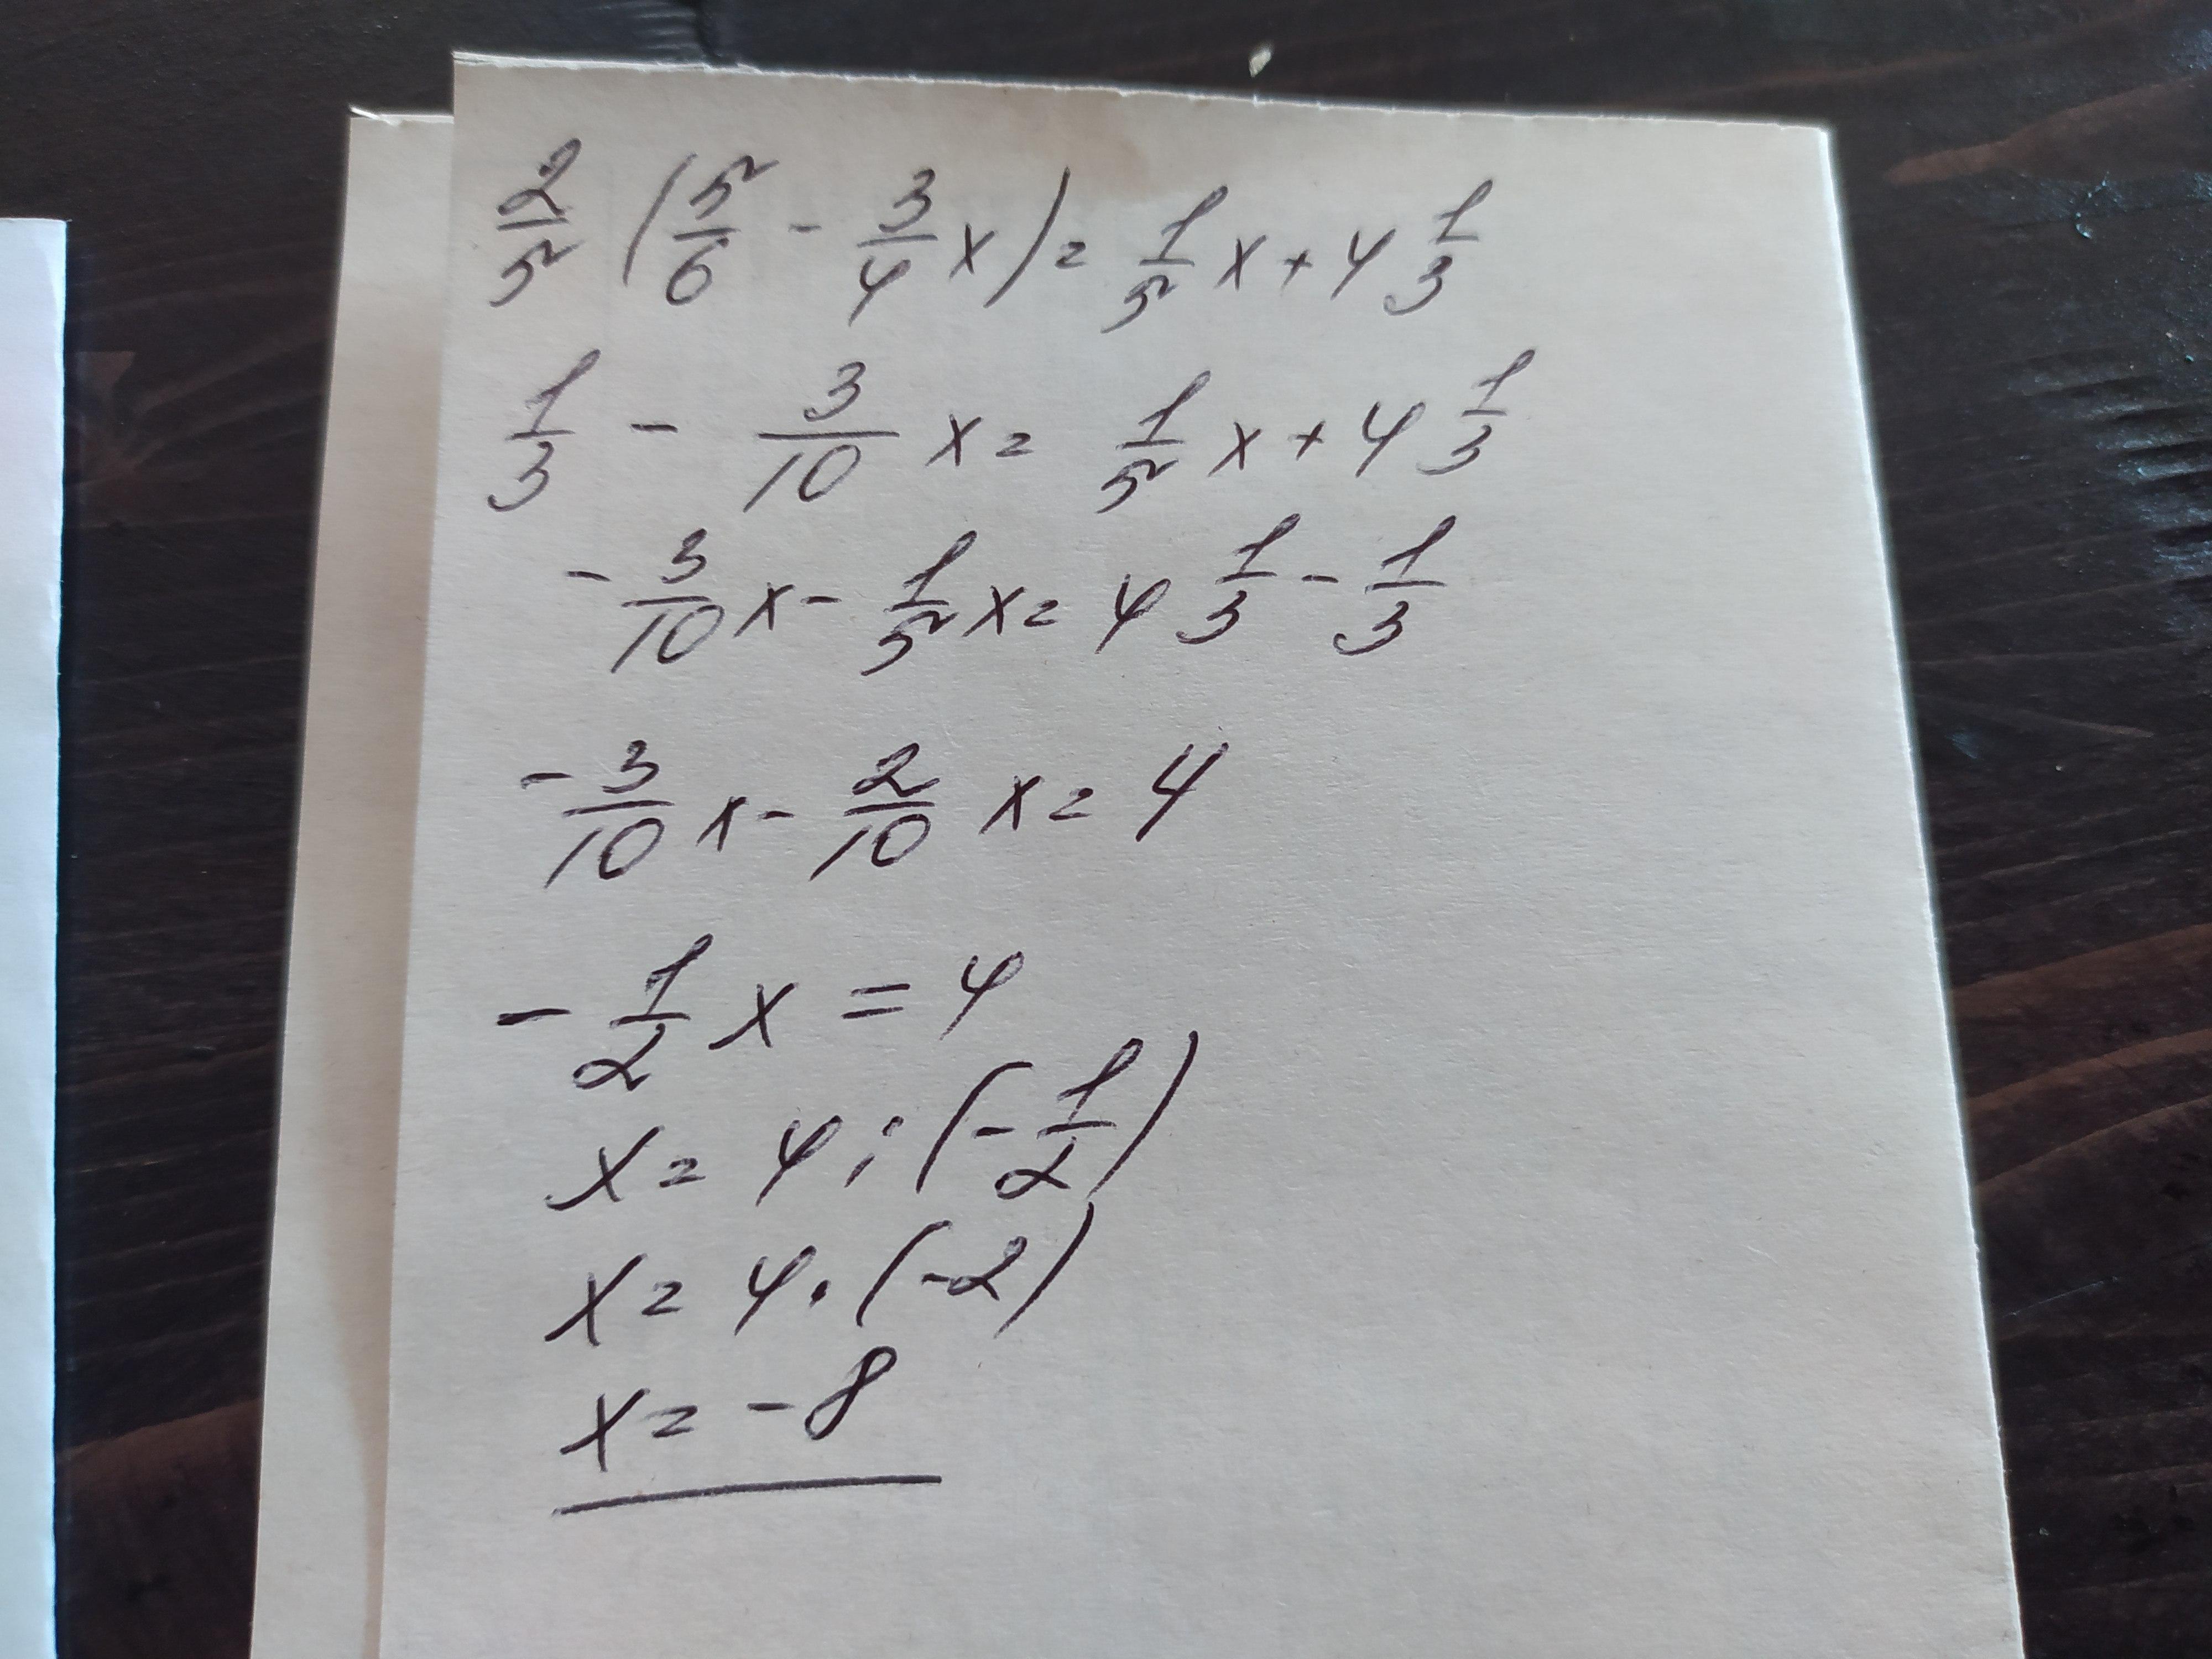 2/5 (5/6 - 3/4 x) = 1/5 x + 4 1/3
1/3 - 3/10 x = 1/5 x + 4 1/3
- 3/10 x - 1/5 x = 4 1/3 - 1/3
- 3/10 x - 2/10 x = 4
- 1/2 x = 4
x = 4 : (- 1/2)
x = 4 · (-2)
x = -8